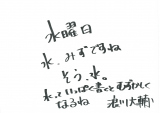 水曜日
水、みずですね
そう、水。
水っていっぱい書くとむずかしく
なるね 浪川大輔